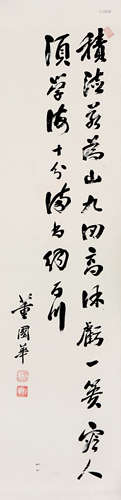 積德若為山九仞高休虧一簣容人
須學海十分滿尚納百川
董國華